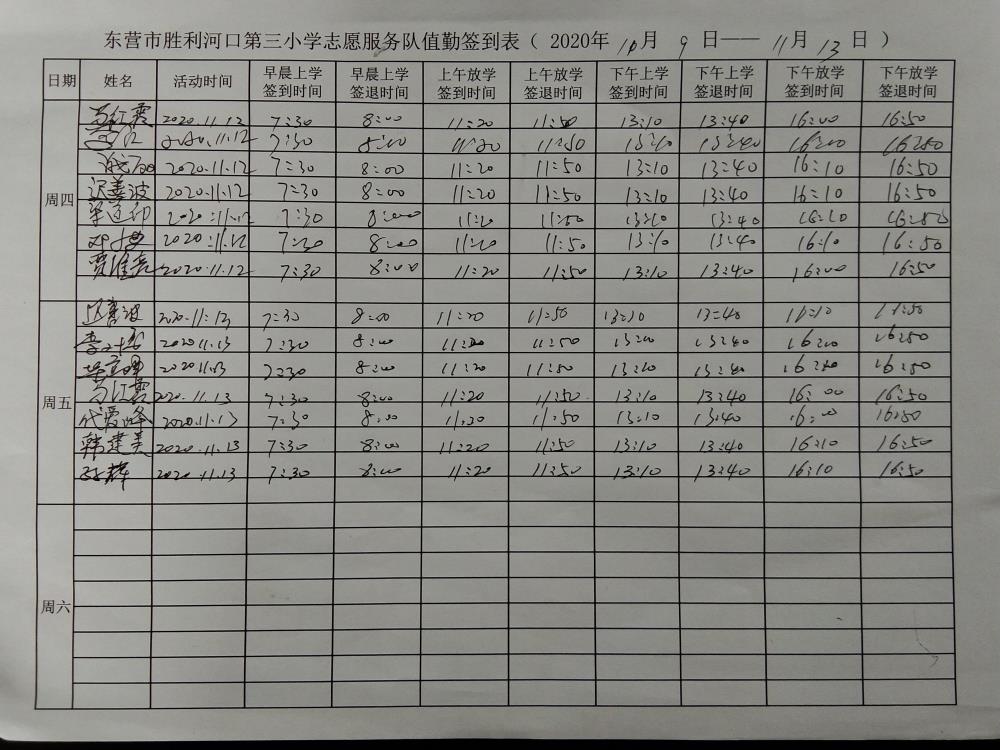 东营市胜利河口第三小学志愿服务队值勤签到表（ 2020年 10月 9 日—— 11月 13 日 ）
日期 姓名 活动时间 早晨上学签到时间 早晨上学签退时间 上午放学签到时间 上午放学签退时间 下午上学签到时间 下午上学签退时间 下午放学签到时间 下午放学签退时间
周四
马红霞 2020.11.12 7:30 8:00 11:20 11:50 13:10 13:40 16:00 16:50
2020.11.12 7:30 8:00 11:20 11:50 13:10 13:40 16:00 16:50
2020.11.12 7:30 8:00 11:20 11:50 13:10 13:40 16:10 16:50
迟善波 2020.11.12 7:30 8:00 11:20 11:50 13:10 13:40 16:10 16:50
2020.11.12 7:30 8:00 11:20 11:50 13:10 13:40 16:10 16:50
2020.11.12 7:30 8:00 11:20 11:50 13:10 13:40 16:10 16:50
贾维亮 2020.11.12 7:30 8:00 11:20 11:50 13:10 13:40 16:00 16:50
周五
迟善波 2020.11.13 7:30 8:00 11:20 11:50 13:10 13:40
2020.11.13 7:30 8:00 11:20 11:50 13:00 13:40 16:00 16:50
2020.11.13 7:30 8:00 11:20 11:50 13:10 13:40 16:50
马红霞 2020.11.13 7:30 8:00 11:20 11:50 13:10 13:40 16:00 16:50
代爱峰 2020.11.13 7:30 8:00 11:20 11:50 13:10 13:40 16:00 16:50
韩建美 2020.11.13 7:30 8:00 11:20 11:50 13:10 13:40 16:10 16:50
孙辉 2020.11.13 7:30 8:00 11:20 11:50 13:10 13:40 16:10 16:50
周六